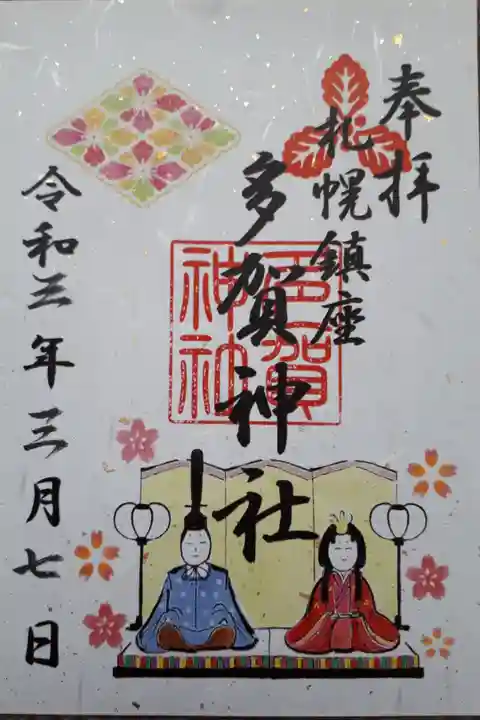 奉拝
札幌鎮座
多賀神社
多賀
神社
令和三年三月七日